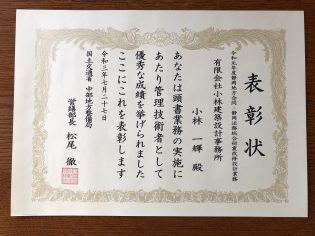 表彰状
令和元年度静岡地方合同・静岡法務総合庁舎改修設計業務
有限会社小林建築設計事務所
小林 一輝 殿
あなたは頭書業務の実施に
あたり管理技術者として
優秀な成績を挙げられました
ここにこれを表彰します
令和三年七月二十七日
国土交通省 中部地方整備局
営繕部長 松尾 徹